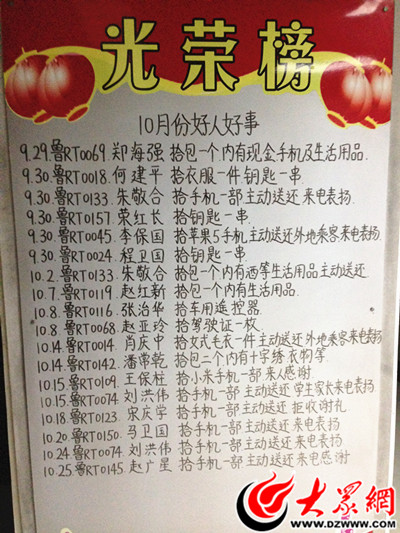 光荣榜
10月份好人好事
9.29.鲁RT0069.郑海强 拾包一个内有现金手机及生活用品.
9.30.鲁RT0018.何建平 拾衣服一件钥匙一串.
9.30.鲁RT0133.朱敬合 拾手机一部主动送还来电表扬
9.30.鲁RT0157 荣红长 拾钥匙一串.
9.30.鲁RT0045.李保国 拾苹果5手机主动送还外地乘客来电表扬
9.30.鲁RT0024.程卫国 拾钥匙一串.
10.2.鲁RT0133.朱敬合 拾包一个内有洒等生活用品主动送还.
10.7.鲁RT0119 赵红新 拾包一个内有生活用品.
10.8.鲁RT0116 张治华 拾车用遥控器.
10.8 鲁RT0068 赵亚玲 拾驾驶证一枚.
10.14.鲁RT0014 肖庆中 拾女式毛衣一件主动送还外地乘客来电表扬
10.14.鲁RT0142 潘常乾 拾包二个内有十字绣衣物等.
10.15.鲁RT0109 王保柱 拾小米手机一部 来人感谢
10.15.鲁RT0074 刘洪伟 拾手机一部主动送还学生家长来电表扬
10.18.鲁RT0123 宋庆学 拾手机一部主动送还 拒收谢礼
10.20 鲁RT0150 马卫国 拾手机一部主动送还来电表扬
10.24 鲁RT0074 刘洪伟 拾手机一部主动送还来电表扬
10.25.鲁RT0145 赵广星 拾手机一部 主动送还来电感谢
大众網
WWW.DZWWW.COM